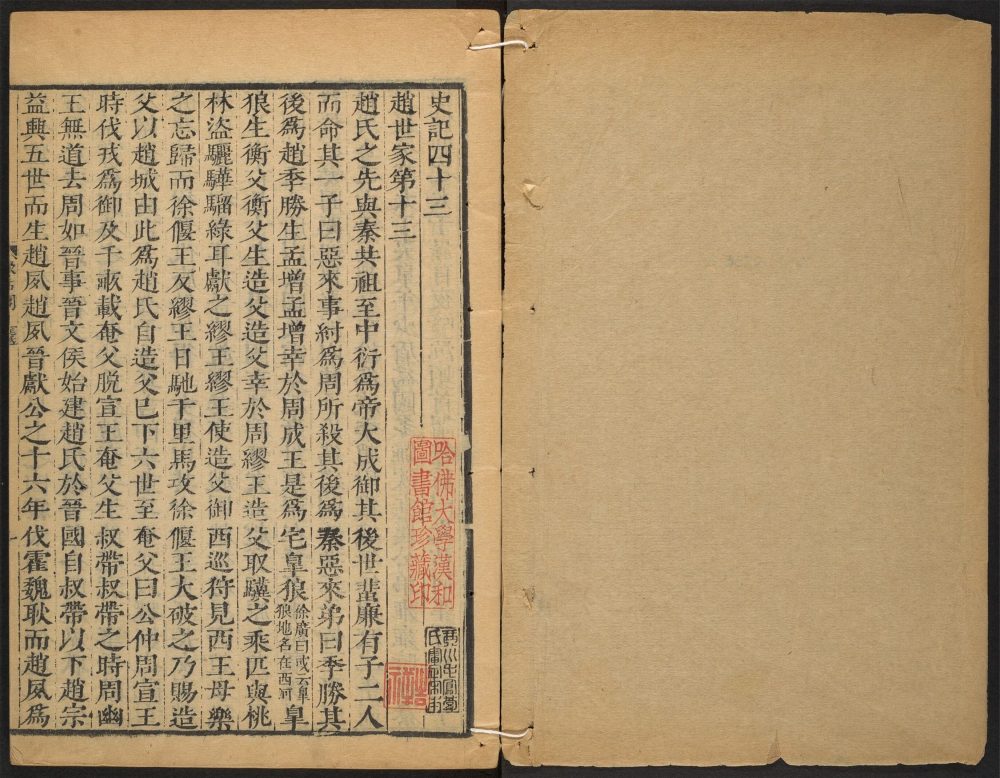 史記四十三
趙世家第十三
趙氏之先與秦共祖至中衍爲帝大戊御其後世蜚廉有子二人
而命其一子曰惡來事紂爲周所殺其後爲秦惡來弟曰季勝其
後爲趙季勝生孟增孟增幸於周成王是爲宅皐狼徐廣曰或云皐狼地名在西河皐
狼生衡父衡父生造父造父幸於周繆王造父取驥之乘匹與桃
林盜驪驊騮綠耳獻之繆王繆王使造父御西巡狩見西王母樂
之忘歸而徐偃王反繆王日馳千里馬攻徐偃王大破之乃賜造
父以趙城由此爲趙氏自造父已下六世至奄父曰公仲周宣王
時伐戎爲御及千畝戰奄父脫宣王奄父生叔帶叔帶之時周幽
王無道去周如晉事晉文侯始建趙氏於晉國自叔帶以下趙宗
益興五世而生趙夙趙夙晉獻公之十六年伐霍魏耿而趙夙爲
哈佛大學漢和
圖書館珍藏印